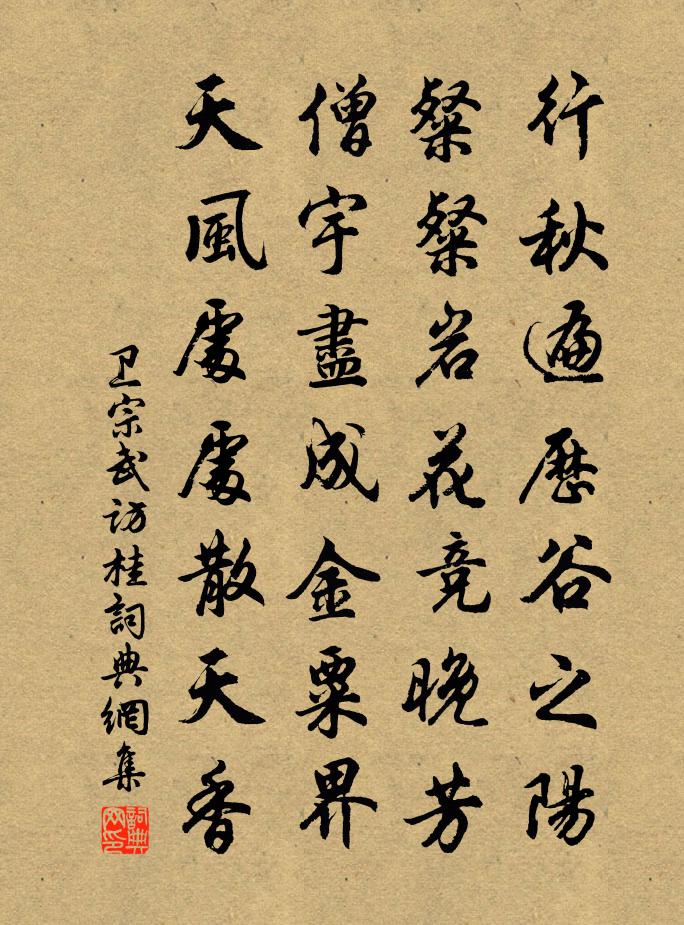 行秋遍歷谷之陽
粲粲岩花竞晚芳
僧宇盡成金粟界
天風處處散天香
卫宗武访桂詞典網集
詞典网印